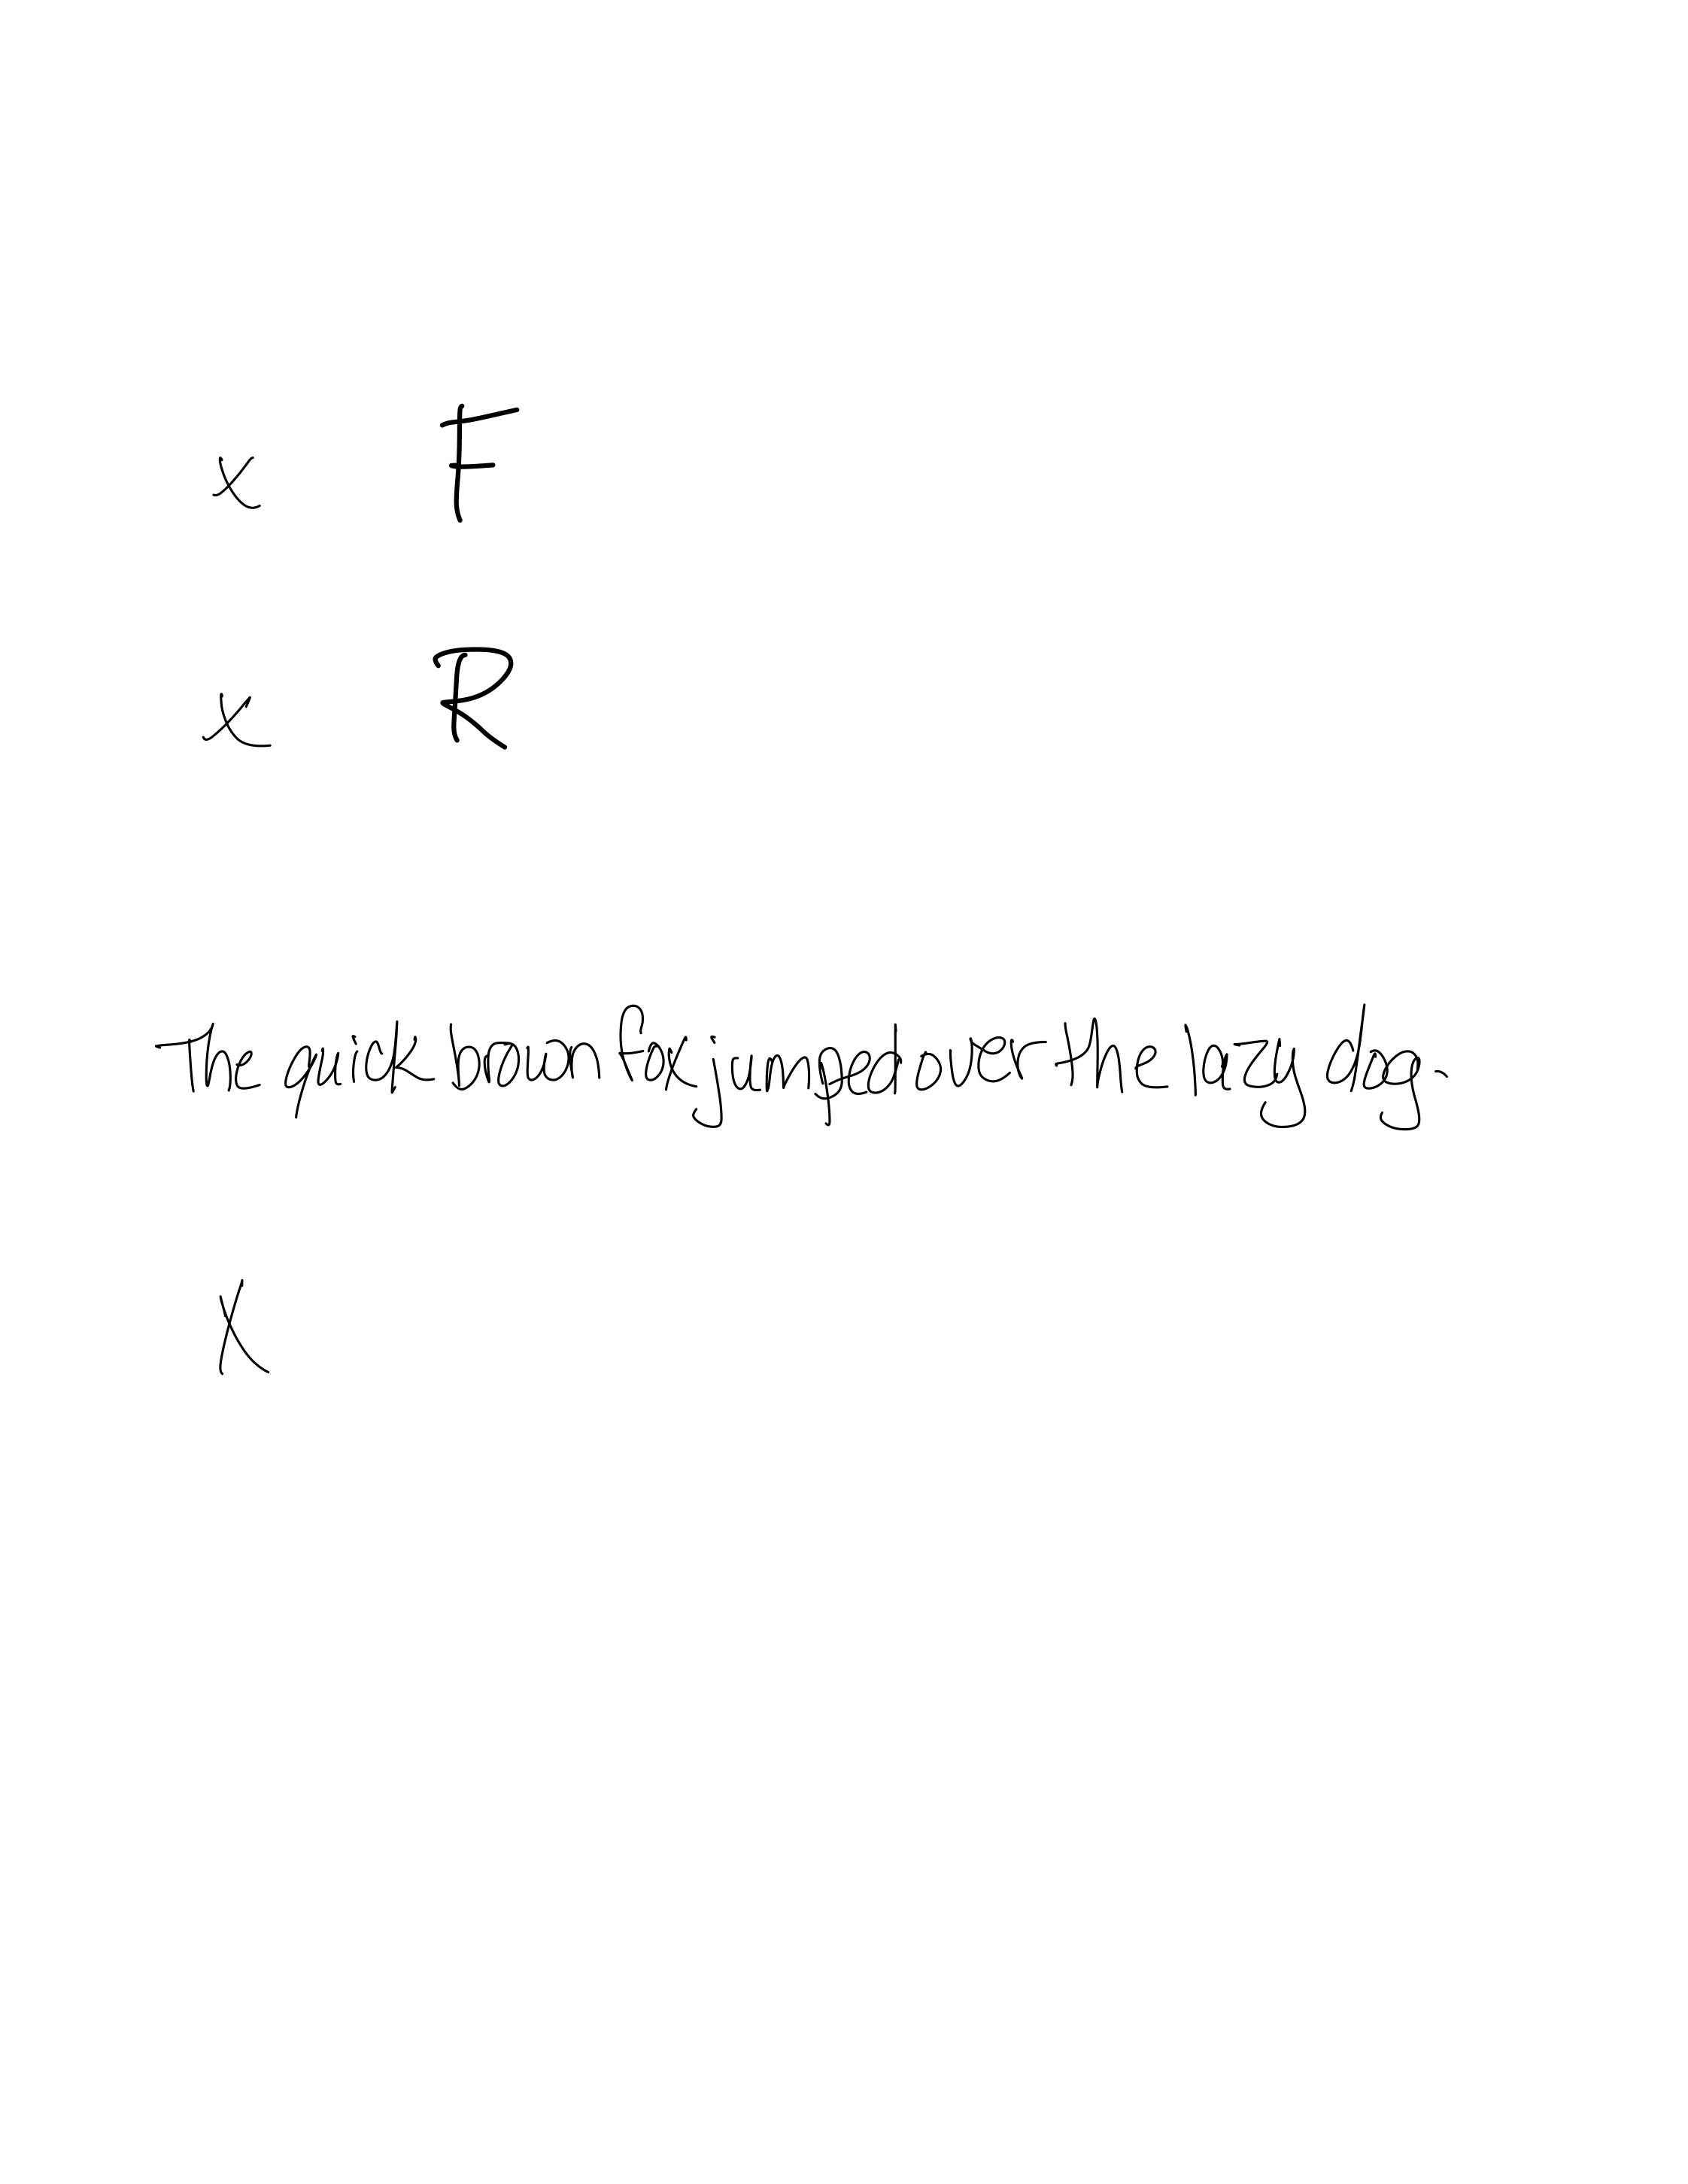 x F
x R
The quick brown fox jumped over the lazy dog.
X